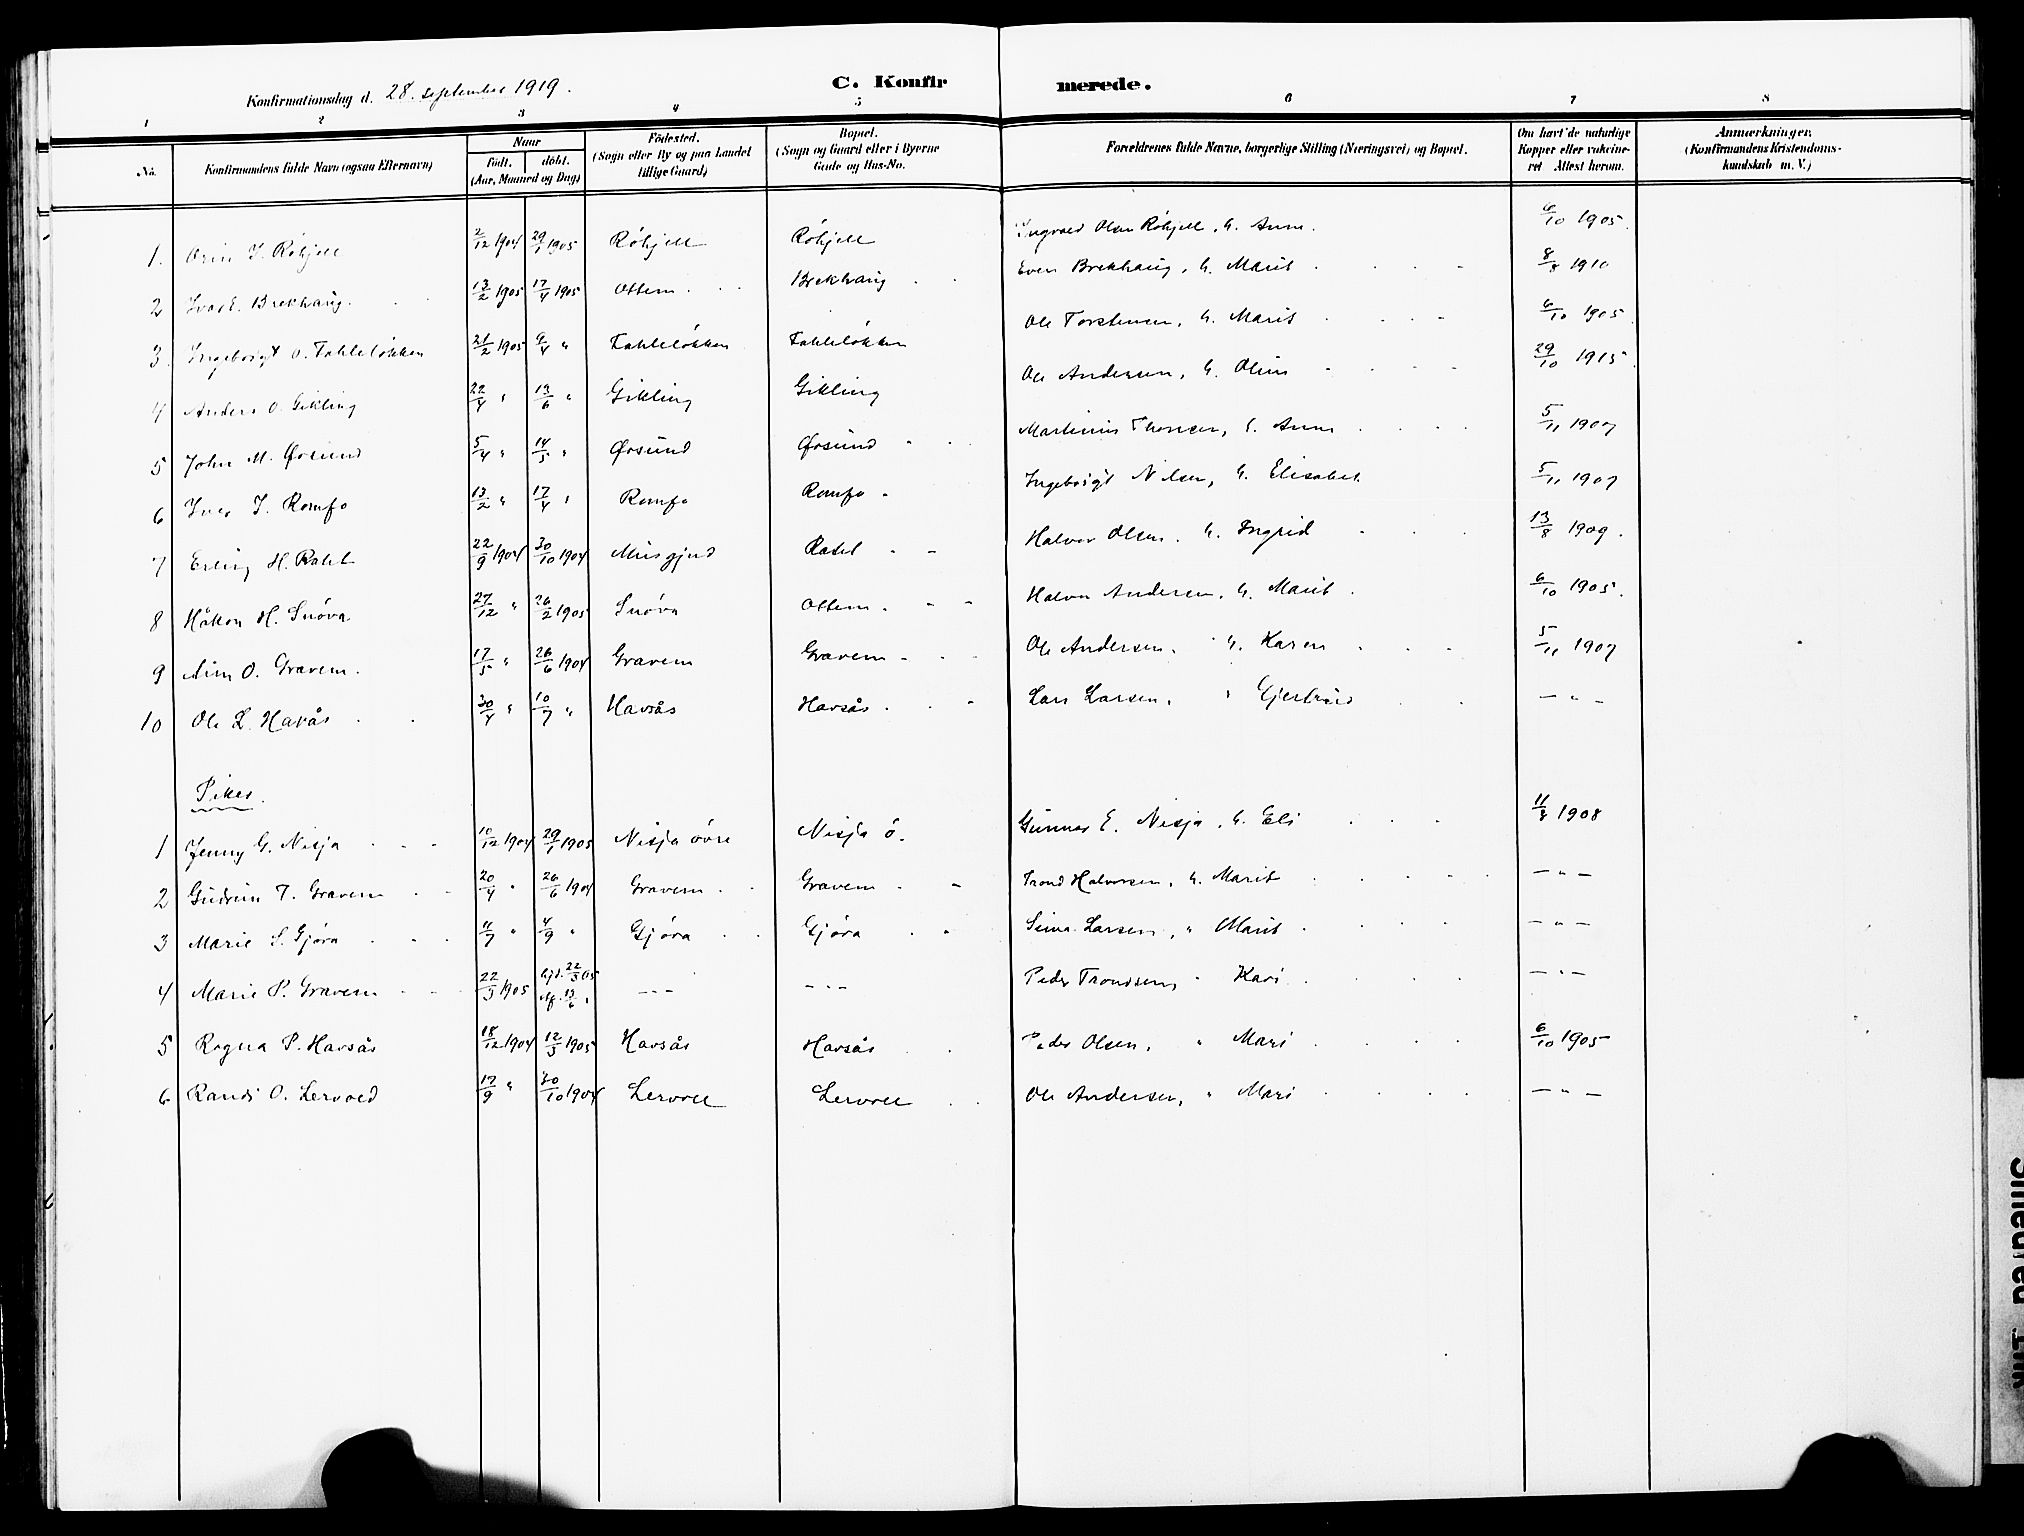 Konfirmationsdag d. 28. september 1919. C. Konfirmerede.
1 2 3 4 5 6 7 8
No. Konfirmandens fulde Navn (ogsaa Efternavn) Naar født, døbt. (Aar, Maaned og Dag) Fødested. (Sogn eller By og paa Landet tillige Gaard) Bopæl. (Sogn og Gaard eller i Byerne Gade og Hus-No. Forældrenes fulde Navne, borgerlige Stilling (Næringsvei) og Bopæl. Om havt de naturlige Kopper eller vakcineret Attest herom. Anmærkninger. (Konfirmandens Kristendomskundskab m. V.)
1. I. Røhjell 2/12 1904 29/1 1905 Røhjell Røhjell Ingvald Olsen Røhjell, h. Anne. 6/10 1905.
2 Ivar E. Brekhaug. 13/2 1905 17/4 1905 Ottem Brekhaug Even Brekhaug, h. Marit 8/8 1910
3. Ingebrigt O. Fahleløkken 21/2 1905 9/4 " Fahleløkken Fahleløkken Ole Torstensen, h. Marit 6/10 1905
4 Anders O. Gikling 22/4 " 13/6 " Gikling Gikling Ole Andersen, h. Oline 29/10 1915
5 John M. Ørsund 5/4 " 14/5 " Ørsund Ørsund Martinus Thoresen, h. Anne 5/11 1907
6 Iver I. Romfo 13/2 " 17/4 " Romfo Romfo Ingebrigt Nilsen, h. Elisabet 5/11 1907
7 Erling H. 22/9 1904 30/10 1904 Musgjerd Halvor Olsen. h. Ingrid 13/8 1909.
8 Håkon H. Snøva 27/12 " 26/2 1905 Snøva Ottem Halvor Andersen, h. Marit. 6/10 1905.
9 O. Gravem. 17/5 " 26/6 1904 Gravem Gravem Ole Andersen. h. Karen 5/11 1907
10 Ole L. Havsås 30/4 " 10/7 " Havsås Havsås Lars Larsen. " Gjertrud — " —
Piker.
1 Jenny G. Nisja 10/12 1904 29/1 1905 Nisja øvre Nisja ø. Gunnar E. Nisja, h. Eli 11/8 1908
2 Gudrun T. Gravem 20/4 " 26/6 1904 Gravem Gravem Trond Halvorsen, h. Marit — " —
3 Marie S. Gjøra 11/7 " 4/9 " Gjøra Gjøra Larsen, " Marit — " —
4 Marie P. Gravem 22/3 1905 hjd. 22/3 05 13/6 " — " — — " — Peder Trondsen, " Kari — " —
5 Ragna P. Havsås 18/12 1904 12/3 1905 Havsås Havsås Peder Olsen, " Mari 6/10 1905
6 Randi O. Lervold 17/9 " 30/10 1904 Lervoll Lervoll Ole Andersen, " Mari — " —